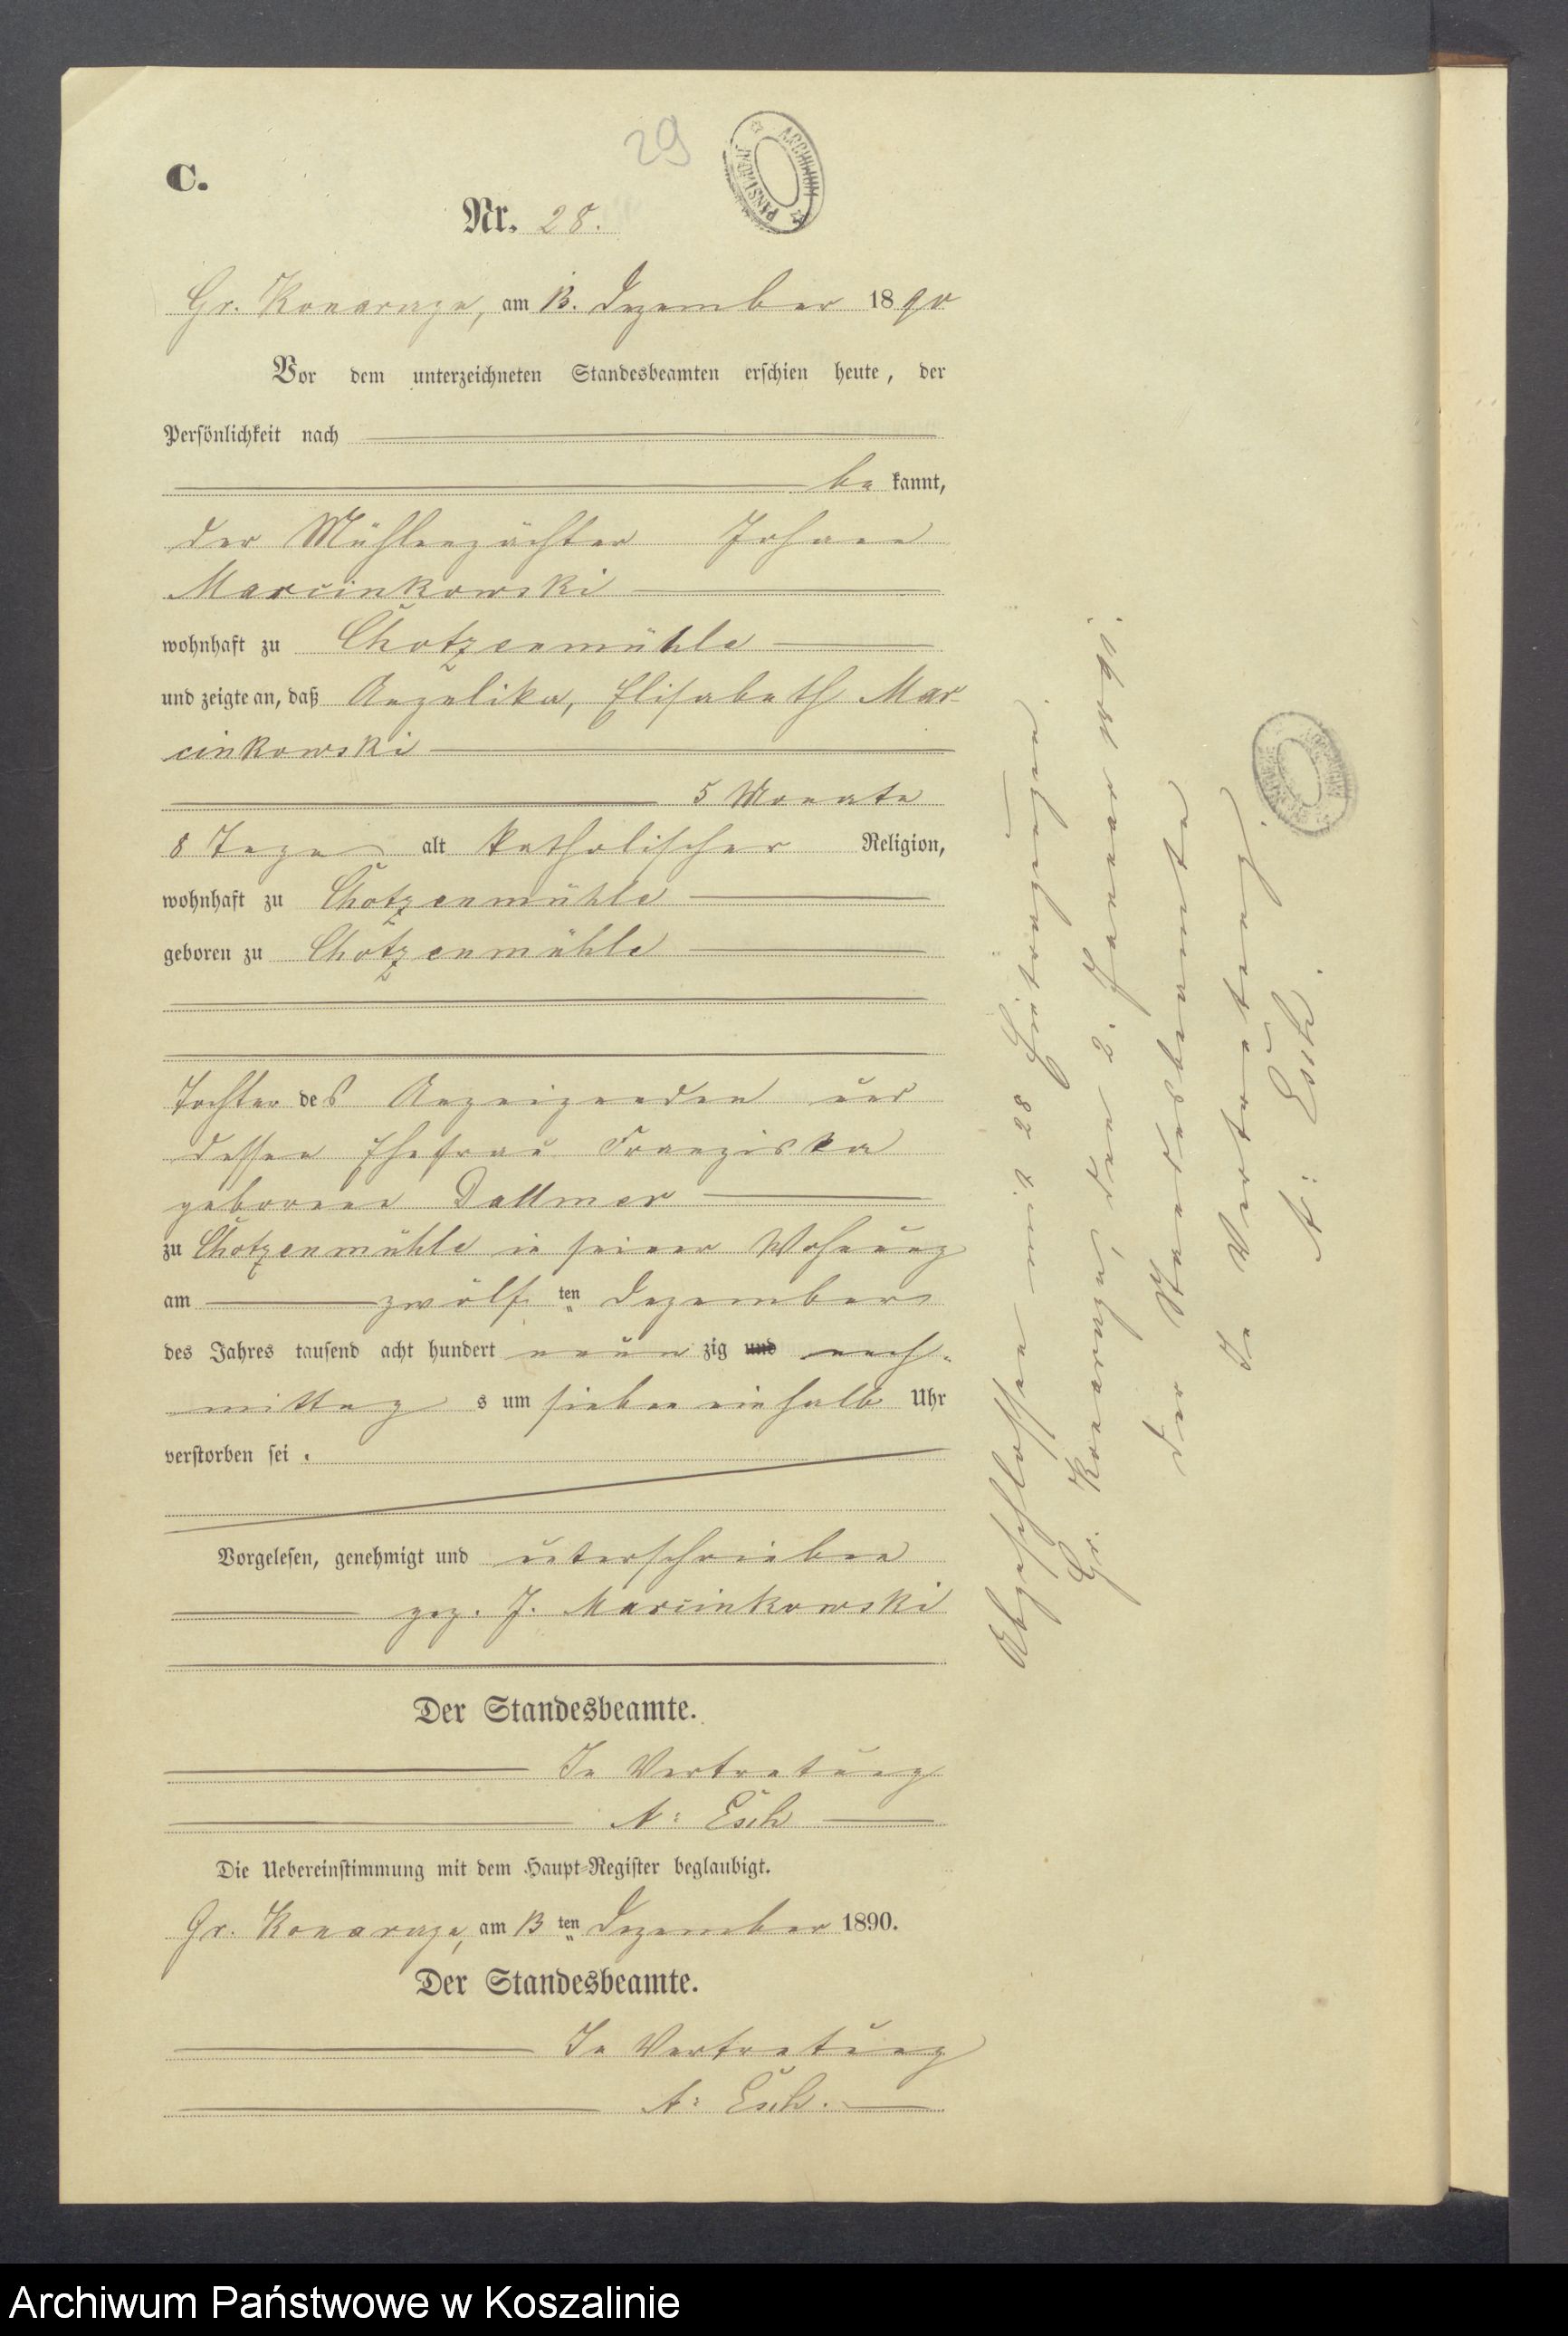 29
ARCHIWUM PAŃSTWOWE
C.
Nr. 28.
Gr. Konarzyn, am 13. Dezember 1890
Vor dem unterzeichneten Standesbeamten erschien heute, der
Persönlichkeit nach
be kannt,
der Mühlenpächter Johann
Marcinkowski
wohnhaft zu Chotzenmühle
und zeigte an, daß Angelika, Elisabeth Mar-
cinkowski
5 Monate
8 Tage alt katholischer Religion,
wohnhaft zu Chotzenmühle
geboren zu Chotzenmühle
Tochter des Anzeigenden und
dessen Ehefrau Franziska
geborene Dallmer
zu Chotzenmühle in seiner Wohnung
am zwölf ten Dezember
des Jahres tausend acht hundert neun zig und nach-
mittag s um sieben einhalb Uhr
verstorben sei.
Vorgelesen, genehmigt und unterschrieben
gez. J. Marcinkowski
Der Standesbeamte.
In Vertretung
A: Esch
Die Uebereinstimmung mit dem Haupt-Register beglaubigt.
Gr. Konarzyn, am 13 ten Dezember 1890.
Der Standesbeamte.
In Vertretung
A: Esch.
Abgeschlossen mit 28 Eintragungen.
Gr. Konarzyn, den 2. Januar 1891.
Der Standesbeamte
In Vertretung.
A: Esch.
Archiwum Państwowe w Koszalinie